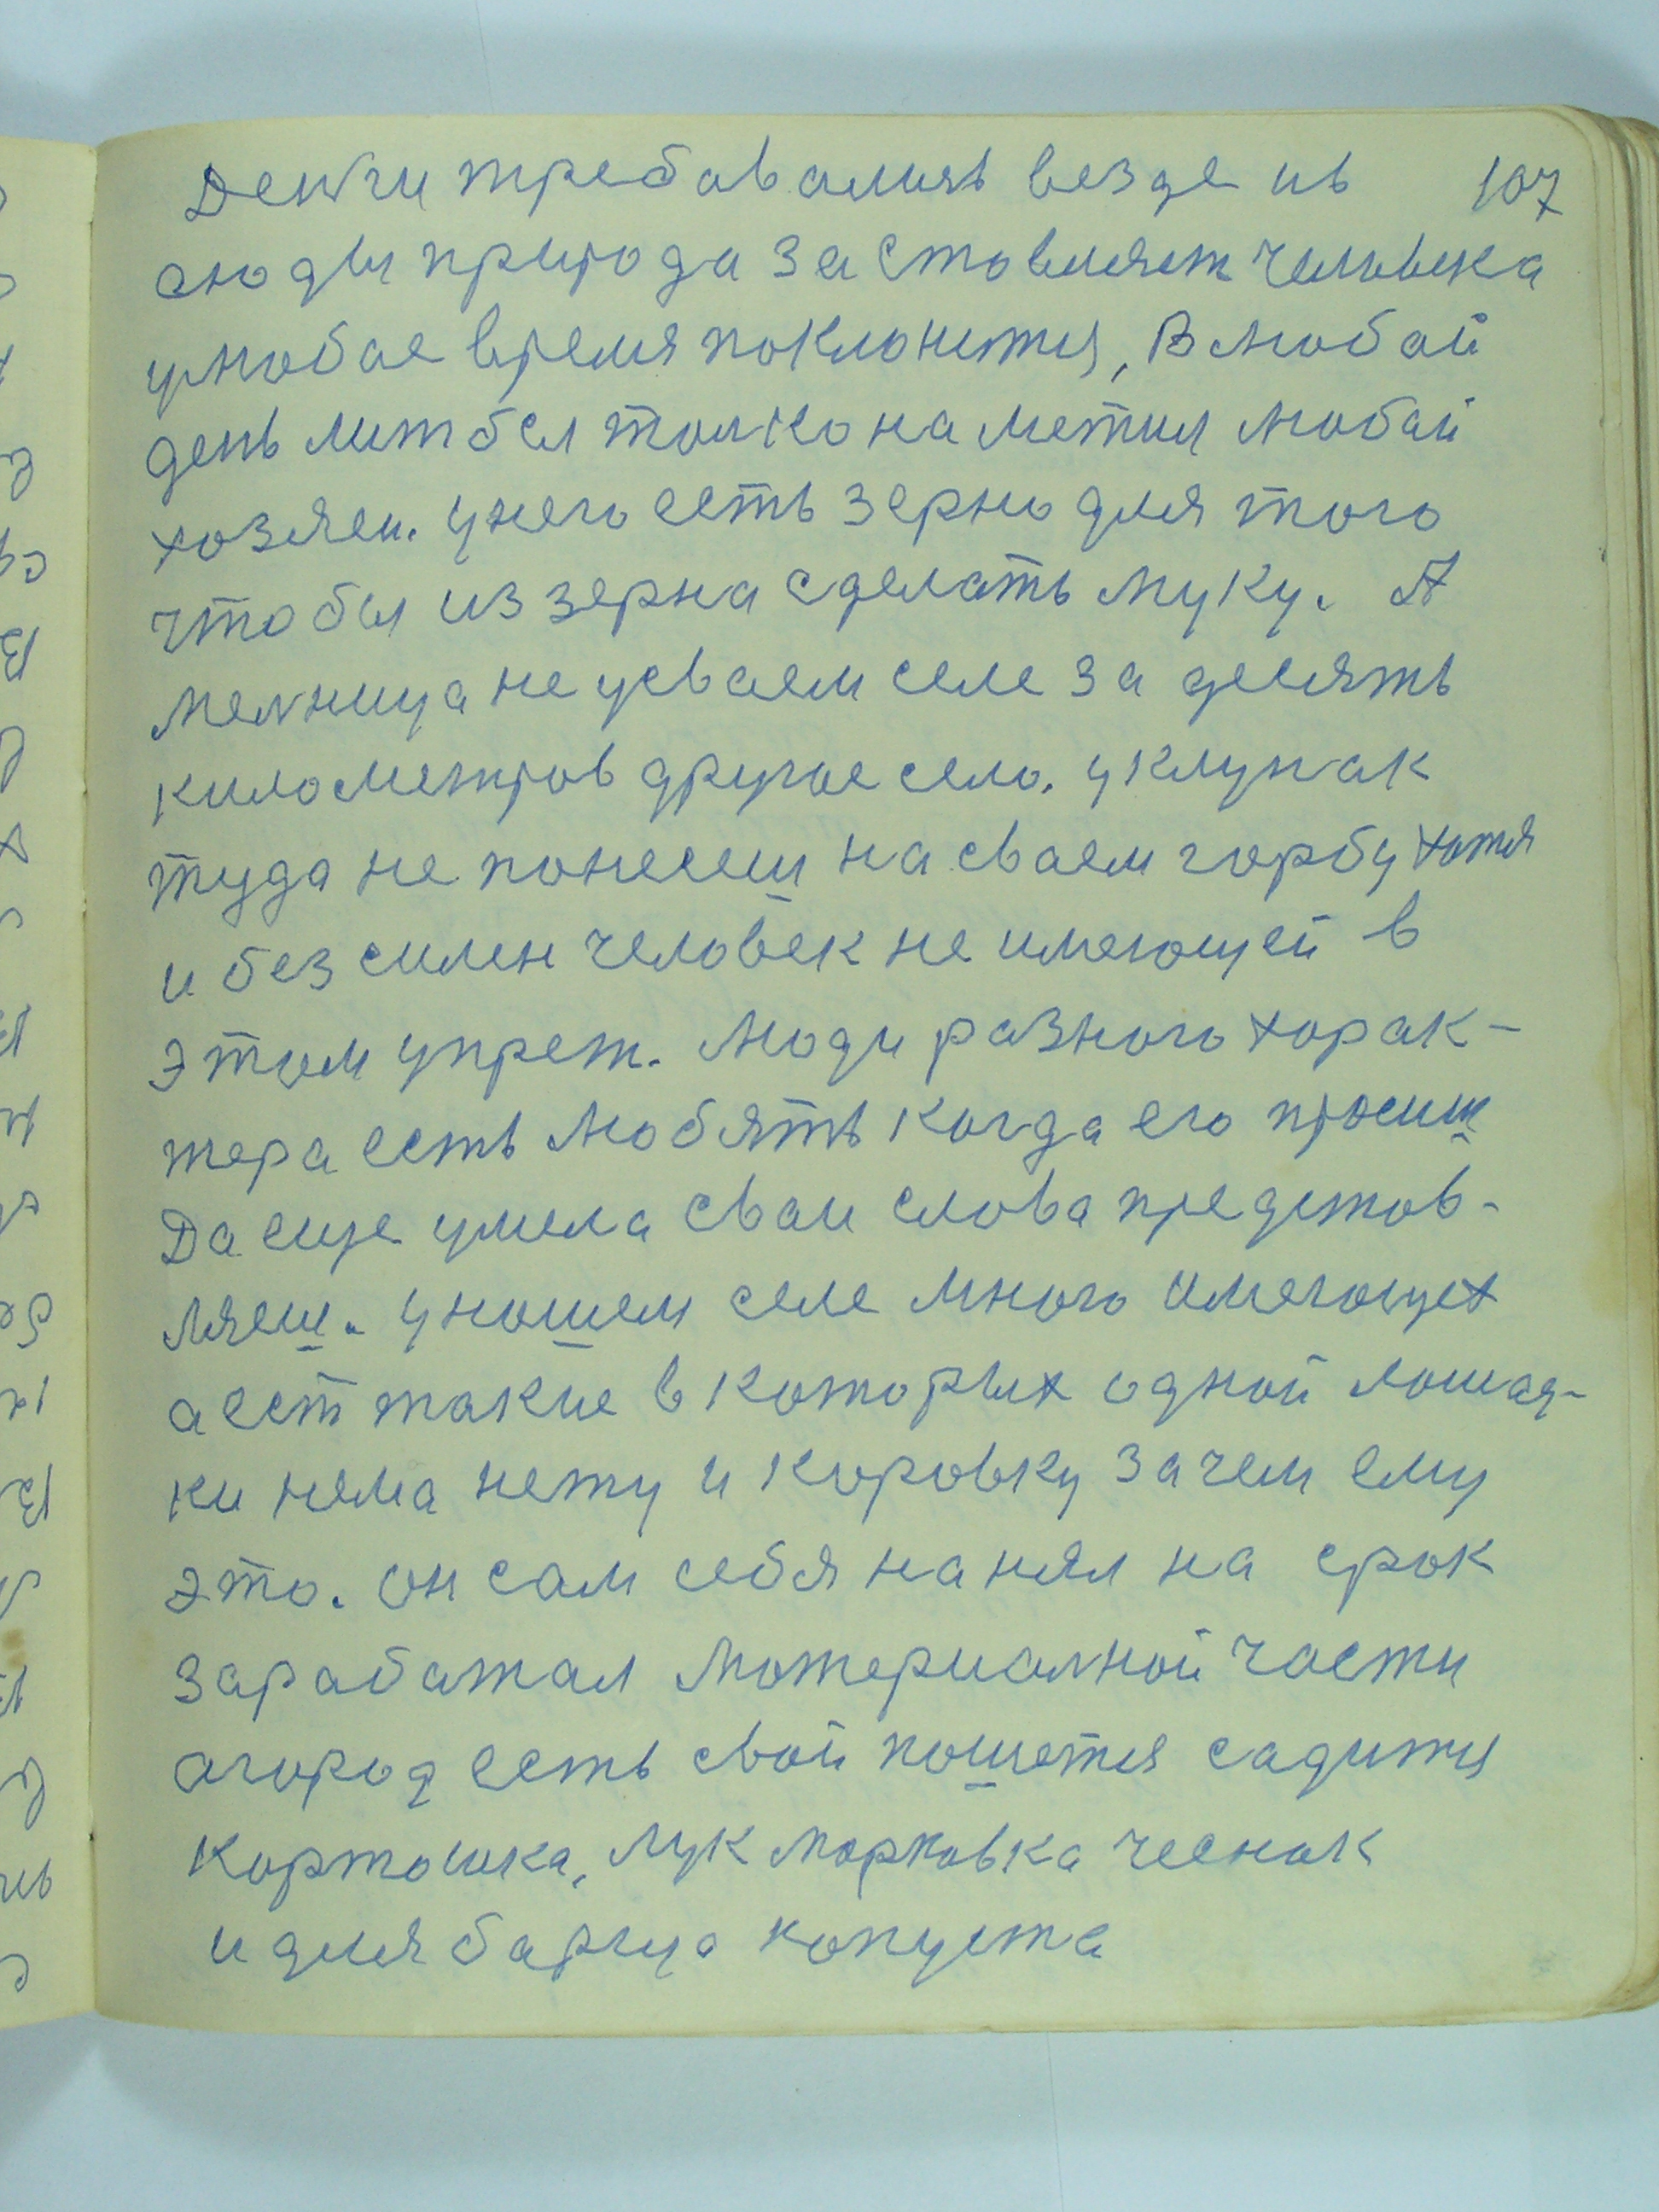 107
Денги требавались везде ив
сюды природа заставляет человека
улюбае время поклонится, В любай
день литбы толко наметил любай
хозяен. унего есть зерно для того
чтобы из зерна сделать муку. А
мелница не усваем селе за десять
километров другое село. уклунак
туда не понесеш на сваем горбу хотя
и без силен человек не имеющей в
этом упреж. Люди разного харак-
тера есть любять когда его просиш
Да еще умела сваи слова представ-
ляеш. унашем селе много имеющех
а ест такие в которых одной лошад-
ки нема нету и коровку зачем ему
это. Он сам себя нанял на срок
зарабатал материалной части
агород есть свой пошется садится
картошка, лук морковка чеснок
и для барща капуста